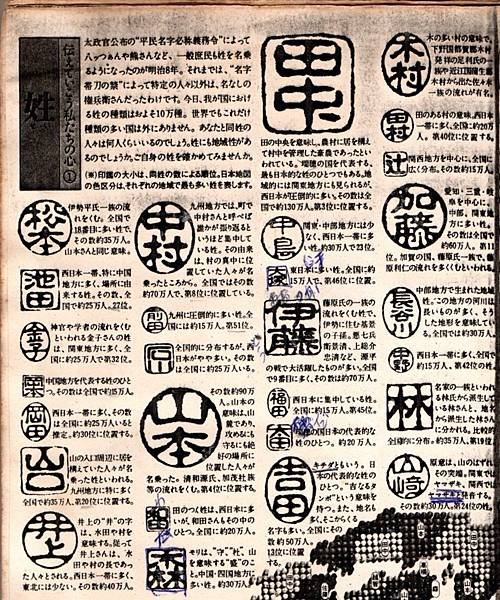 伝えていこう私たちの心①
姓
太政官公布の“平民名字必称義務令”によって
八ッつぁんや熊さんなど、一般庶民も姓を名乗
るようになったのが明治8年。それまでは、“名字
帯刀の禁”によって特定の人々以外は、名なしの
権兵衛さんだったわけです。今日、我が国におけ
る姓の種類はおよそ10万種。世界でもこれだけ
種類の多い国は外にありません。あなたと同姓の
人々は何人くらいいるのでしょう。姓にも地域性があ
るのでしょうか。ご自身の姓を確かめてみませんか。
(※)印鑑の大小は、同姓の数による順位。日本地図
の色区分は、それぞれの地域で最も多い姓を表します。
松本
伊勢平氏一族の流
れをくむ。全国で
18番目に多い姓で、
その数約35万人。
山本さんと同じ意味。
池田
西日本一帯、特に中国
地方に多く、場所に由
来する姓。その数、全
国で約25万人。27位。
金子
神官や学者の流れをくむ
といわれる金子さんの姓
は、関東地方に多く、全
国に約25万人で第32位。
中国地方を代表する姓のひと
つ。その数は全国で約15万人。
岡田
西日本一帯、その数
は全国に約25万人いると
推定。約30位に位置する。
山口
山の入口周辺に居を
構えていた人々が名
乗った姓といわれる。
九州地方に特に多く、
全国で約35万人。第20位に位置する。
井上
井上の“井”の字
は、水田や村を
意味する。従って
井上さんは、水
田や村の長であっ
た人々とされる。西日本一帯に多く、
東北には少ない。その数約40万人。
中村
九州地方では、町で
中村さんと呼べば
誰かが振り返ると
いうほど集中して
いる姓。その由来
は、村の真中に位
置していた人々が名
乗ったところから。全国ではその数
約70万人で、第8位に位置している。
前田
九州に圧倒的に多い姓。全
国には約15万人。第51位。
原
全国的に分布するが、西
日本がやや多い。その数
は全国に約25万人。
山本
その数約90万
人。山本の
意味は、山
麓であり、
攻めるにも
守るにも絶
好の場所に
位置した人々が
名乗った。清和源氏、加茂氏族
等の流れをくむ。第4位に位置する。
和田
田のつく姓は、西日本に多
いが、和田さんもその中の
ひとつ。全国に約20万人。
森
モリは、“守”、“杜”、山
を意味する“盛”のこ
と。中国・四国地方に
多い姓。約30万人。
田中
田の中央を意味し、農村に居を構え
て村中を管理した豪農であったとい
われている。瑞穂の国を代表する、
最も日本的な姓のひとつでもある。地
域的には関東地方にも見られるが、
西日本が圧倒的に多い。その数は全
国で約130万人。第3位に位置する。
中島
関東・中部地方には少
なく、西日本一帯に多い
姓。約30万人で23位。
東日本に多い姓。全国に約
15万人で、第46位に位置する。
伊藤
藤原氏の一族の
流れをくむ姓で、
伊勢に住む基景
の子孫。悪七兵
衛景清、上総介
忠清など、源平
の戦で大活躍したものが多い。全国
で9番目に多く、その数は約70万人。
福田
西日本に集中している姓。
全国に約15万人。第45位。
四国の国の日本の代表的な
姓のひとつ。約20万人。
吉田
キチダともいう。日
本の代表的な姓の
ひとつ。“吉なるタ
ンボ”という意味を
持つ。また、地名も
多く、そこからくる
名字も多い。全国にそ
の数約50万人。
13位に位置
する。
木村
木の多い村の意味で、
下野国都賀郡木村
発祥の足利氏の一
族や近江国蒲生郡
木村から出た佐々木
一族の流れが有名。
田村
田のある村の意味。西日本
一帯に多く、全国に約20万
人。第40位に位置する。
辻
関西地方を中心に、全国に
広く分布。その数約15万人。
加藤
愛知・三重・岐
阜を中心に、
中部、関東地
方に多い姓。
その数は全国
で約60万人。
第11位。加賀の国、藤原氏一族で、藤
原利仁の流れを多くくむといわれる。
長谷川
中部地方で生まれた地
域姓。この地方の河川は
長いものが多く、そう
した地形を意味してい
る。全国では約30万人。
西日本一帯に多く、全国で
約15万人、第42位の姓。
林
名家の一族といわれ
る林氏から派生して
いる林さんと、地名
から派生した林さん
に分かれる。比較的
全国的に分布。約35万人。第19位。
山﨑
原意は、山のはずれ、
その突端。関東では
ヤマザキ、関西では
ヤマサキと発音する。
その数約30万人。第24位の姓。